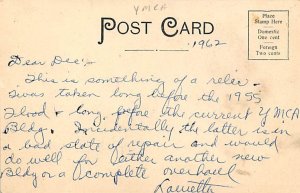 YMCA
POST CARD
Place
Stamp Here
Domestic
One cent
Foreign
Two cents
1962
Dear Dee:
This is something of a relic.
Twas taken long before the 1955
Flood & long before the current YMCA
Bldg. Incidentally the latter is in
a bad state of repair and would
do well for either another new
Bldg or a complete overhaul